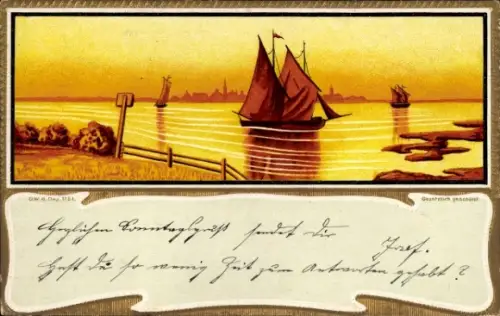 Gesetzlich geschützt
Herzlichen Sonntagsgruß sendet dir Josef.
Hast du so wenig Zeit zum Antworten gehabt?